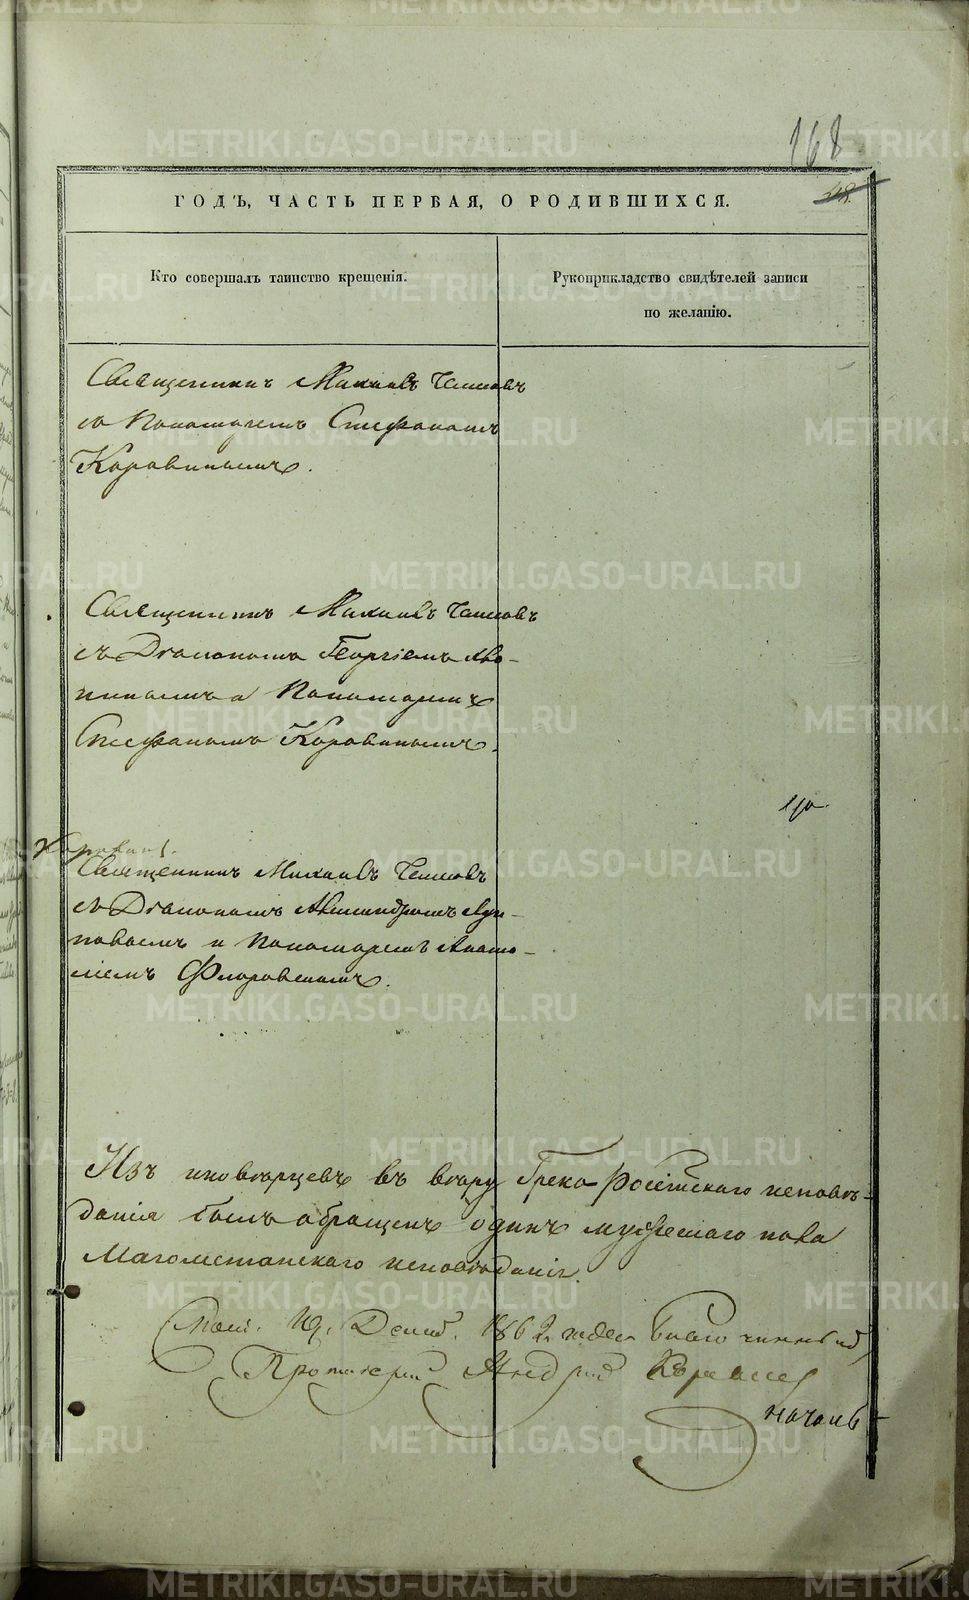 168
48.
ГОДЪ, ЧАСТЬ ПЕРВАЯ, О РОДИВШИХСЯ.
Кто совершалъ таинство крещенія.
Рукоприкладство свидѣтелей записи
по желанію.
Священникъ Михаилъ
съ Пономаремъ Стефаномъ
Коровинымъ.
Священникъ Михаилъ
съ Діакономъ Георгіемъ
и Пономаремъ
Стефаномъ Коровинымъ.
Священникъ Михаилъ
съ Діакономъ Александромъ Луп-
повымъ и Пономаремъ Анато-
ліемъ Флоровскимъ.
Изъ иновѣрцевъ въ вѣру Греко Россійскаго исповѣ-
данія былъ обращенъ одинъ мужескаго пола
Магометанскаго исповѣданія.
1862 года Благочинный
Протоіерей Андрей
METRIKI.GASO-URAL.RU